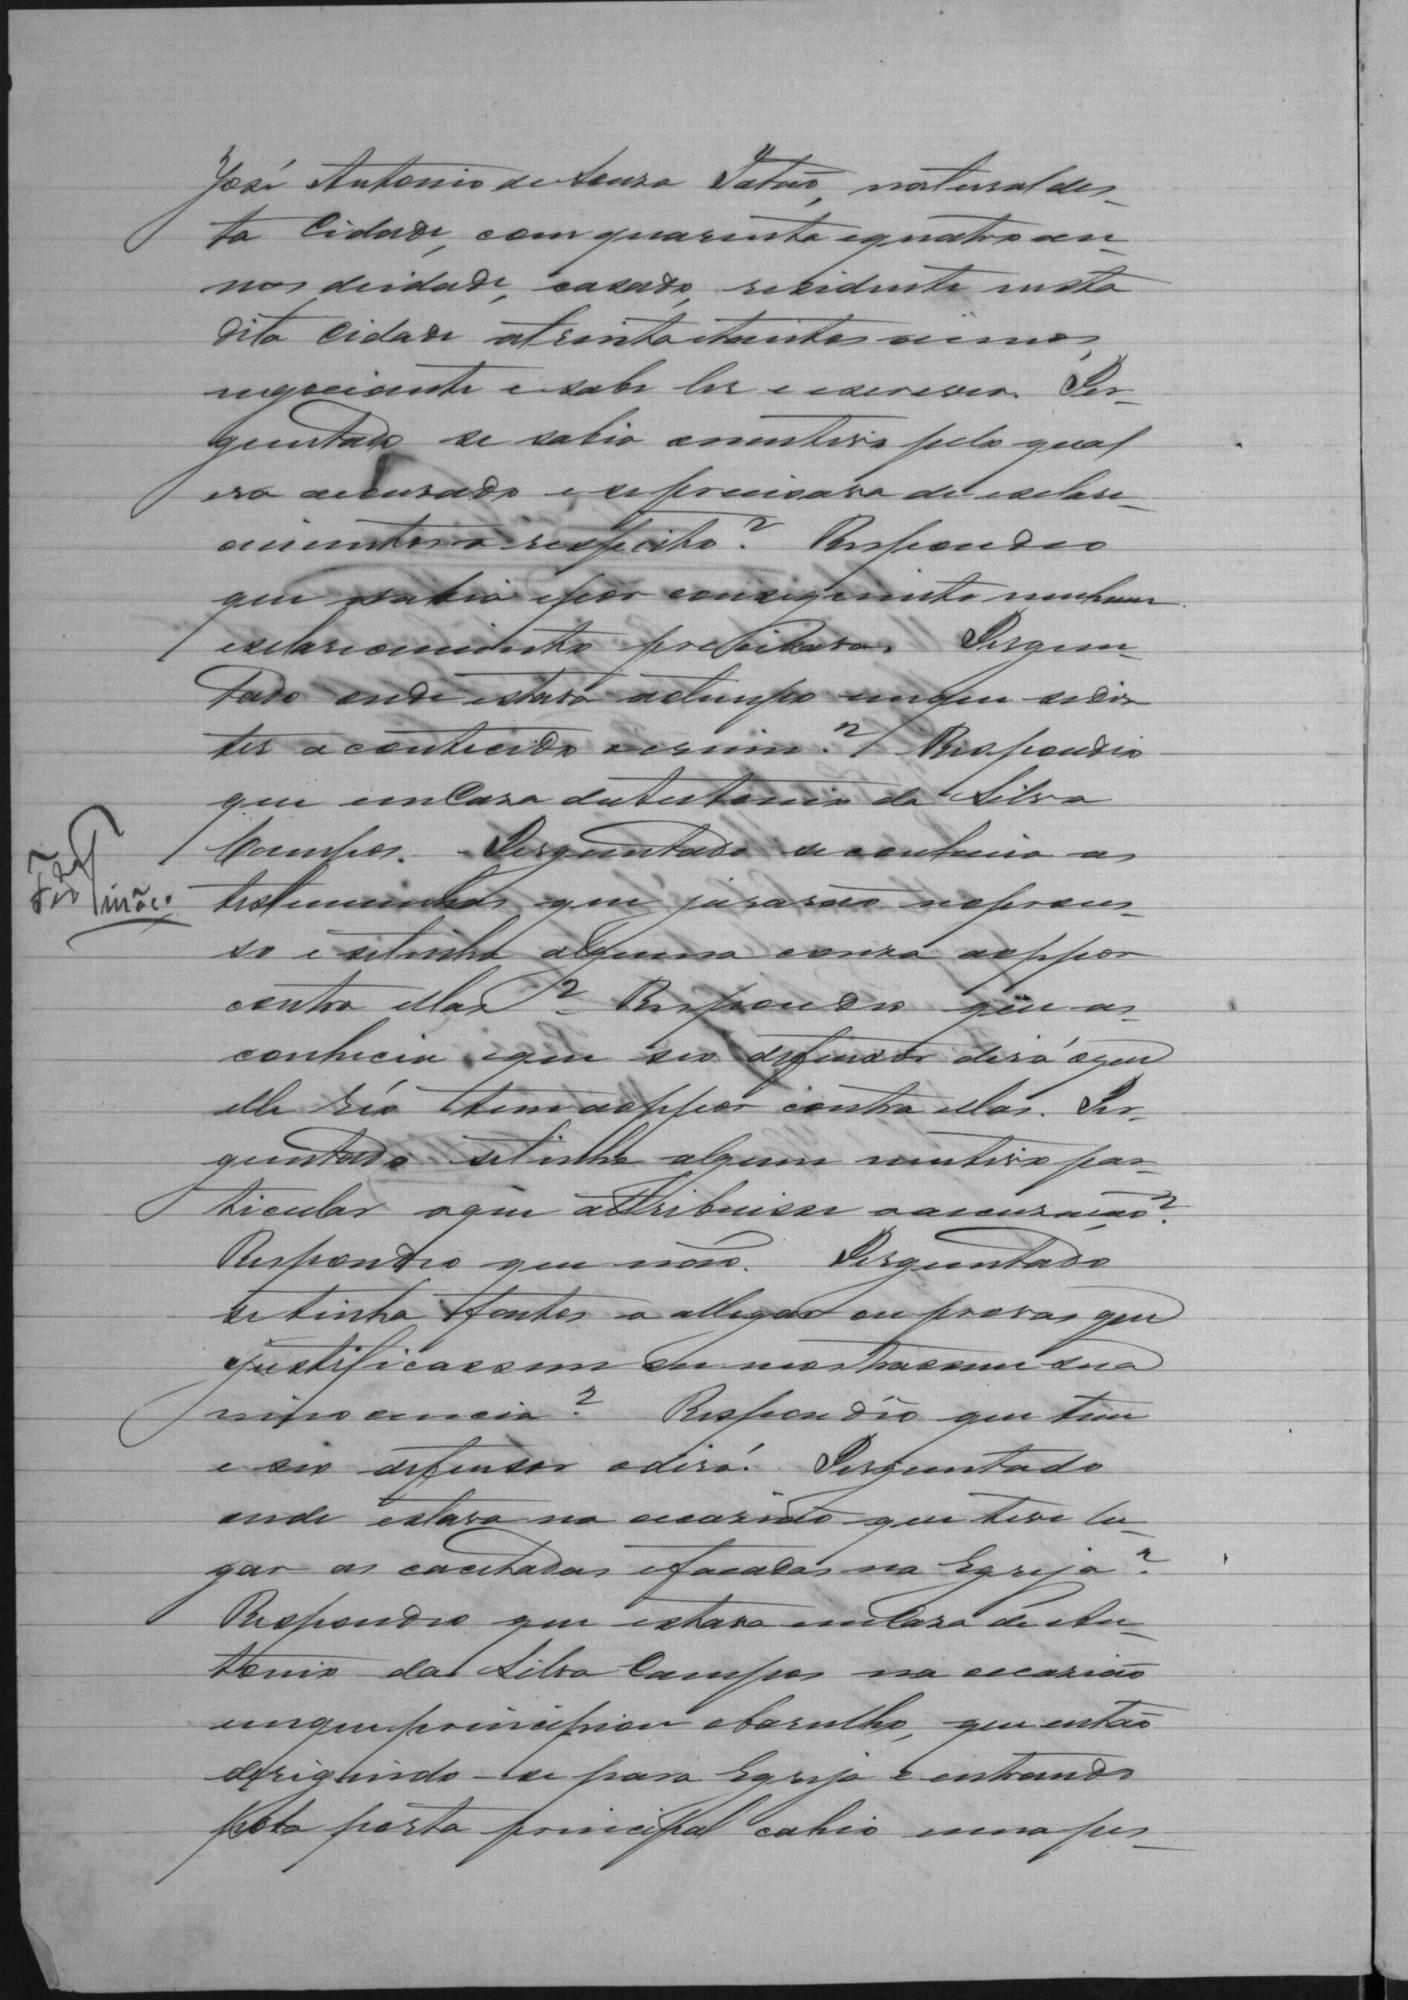 José Antonio de Souza Tatão, natural des-
ta Cidade, com quarenta e quatro an-
nos de idade, casado, rezidente nesta
dita Cidade a trinta e tantos annos,
negociante e sabe ler e escrever. Per-
guntado se sabia o mutivo pelo qual
era accusado e se precisava de esclare-
cimentos a respeito? Respondeo
que sabia e por conseguinte nenhum
esclarecimento precisava. Pergun-
tado onde estava ao tempo em que se diz
ter acontecido o crime? Respondeo
que em Caza de Antonio da Silva
Campos. Perguntado se conhecia as
testimunhas que jurarão no proces-
so e se tinha alguma couza a oppor
contra ellas? Respondeo que as
conhecia, e que seo defensor dirá o que
elle réo tem a oppor contra ellas. Per-
guntado se tinha algum mutivo par-
ticular a que attribuisse a accusação?
Respondeo que não. Perguntado
se tinha factos a allegar ou provas que
justificassem ou mostrassem sua
innocencia? Respondeo que tem
e seo defensor o dirá. Perguntado
onde estava na occasião que teve lu-
gar as cacetadas e facadas na Egreja?
Respondeo que estava em Caza de An-
tonio da Silva Campos na occasião
em que principiou o barulho, que então
derigindo-se para Egreja e entrando
pela porta principal cahio uma pes-